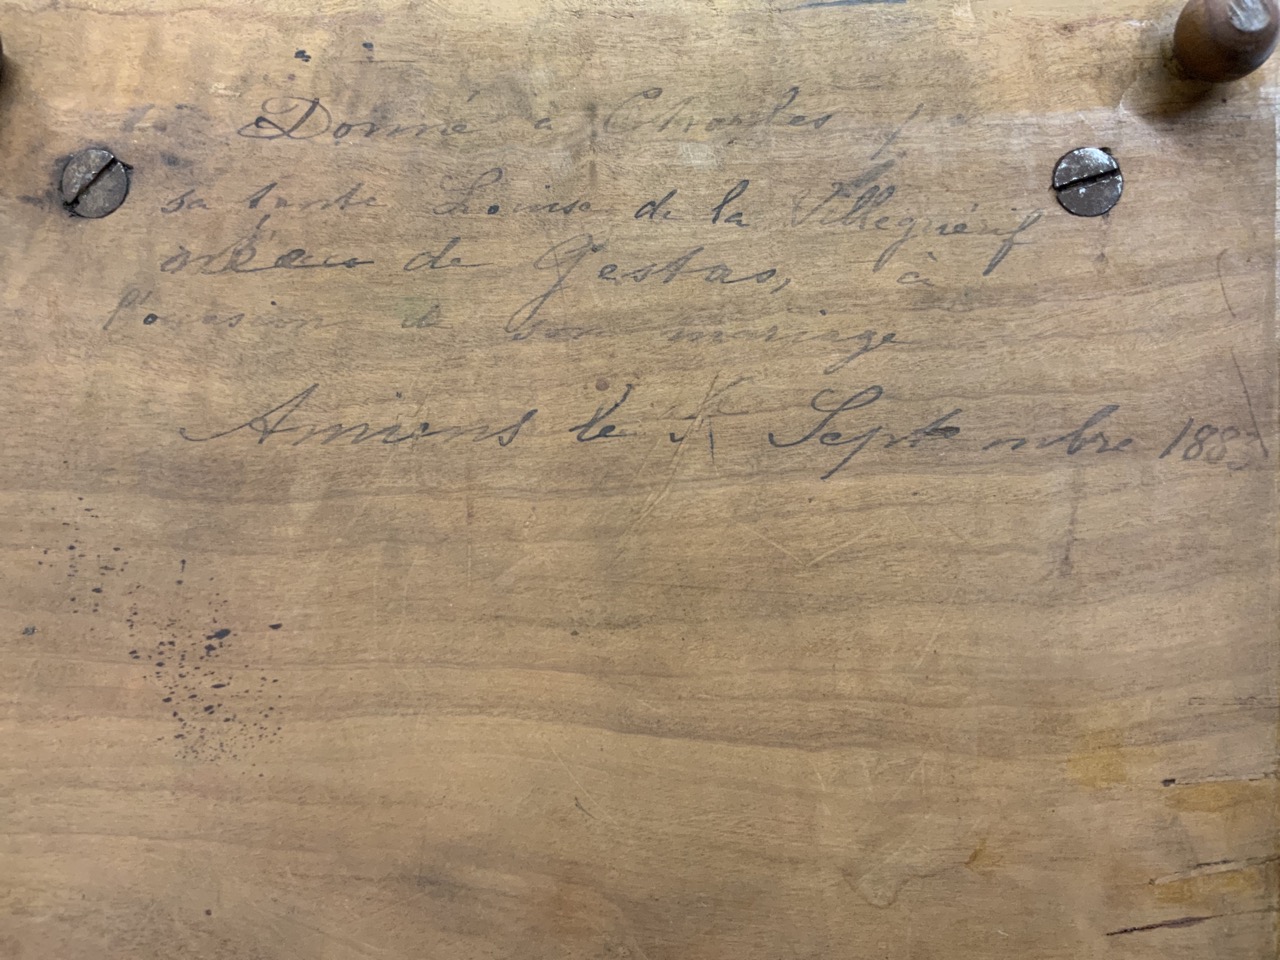 Donné à Charles
sa tante Louise de la Villeguérif
de Gestas, à
l'occasion de son mariage
Amiens le Septembre 188